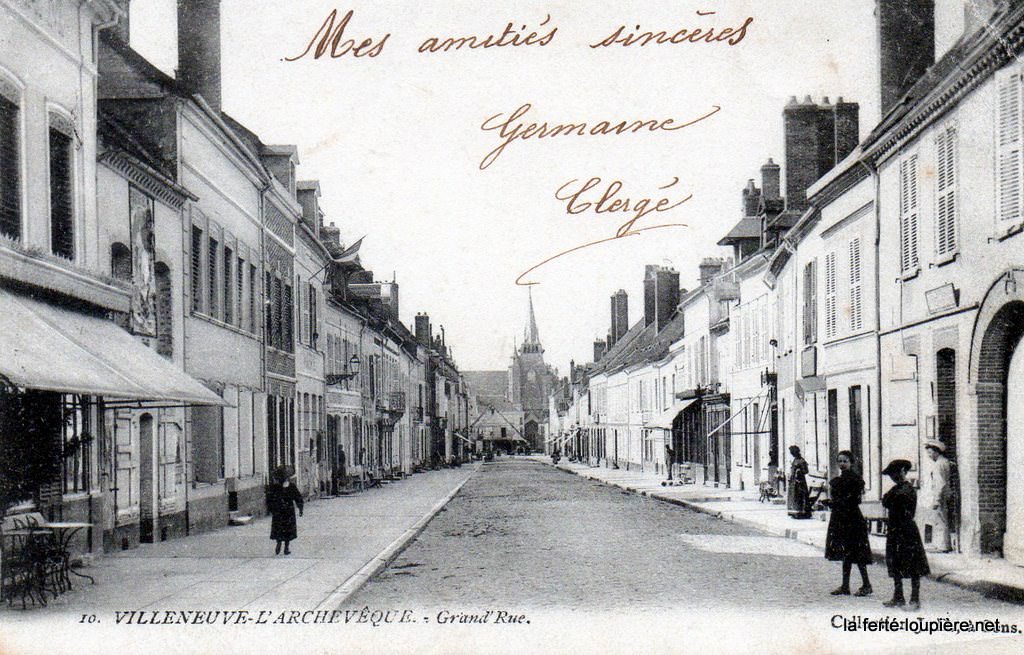 Mes amitiés sincères
Germaine
Clergé
10. VILLENEUVE-L'ARCHEVÊQUE. - Grand'Rue.
la ferté-loupière.net
à Sens.